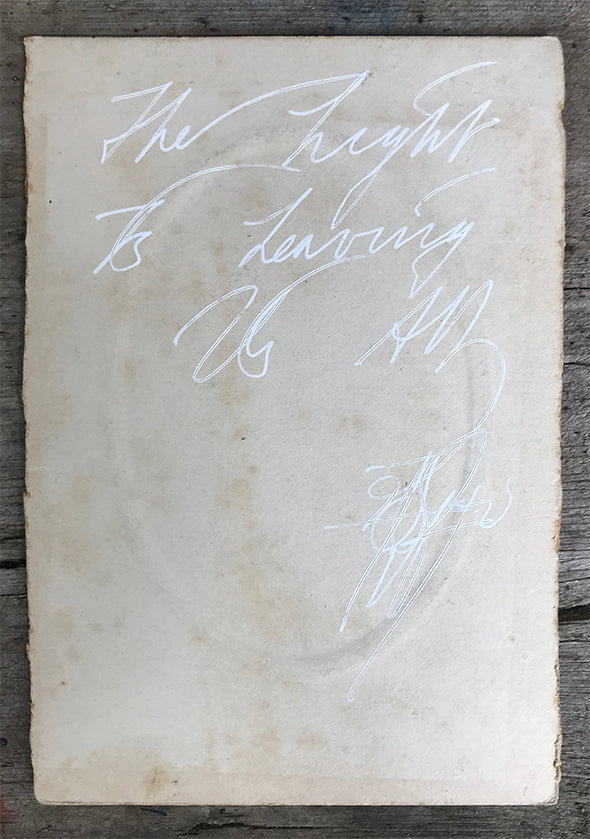 The Light
Is Leaving
Us All